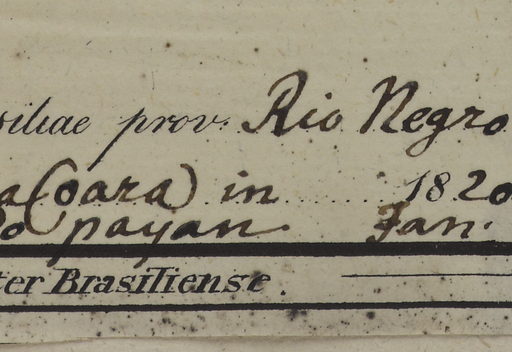 siliae prov. Rio Negro
a(oara) in ...... 1820
o payan. Jan.
ter Brasiliense.